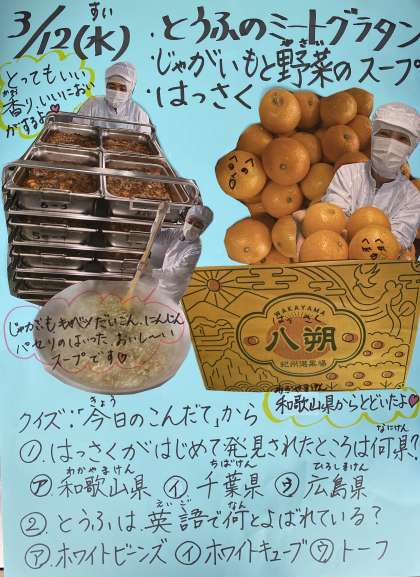 3/12(水)
すい
・とうふのミートグラタン
・じゃがいもと野菜のスープ
やさい
・はっさく
とってもいい
香り、いいにおい
かお
がするよ♡
WAKAYAMA
はっさく
八朔
紀州選果場
じゃがいも キャベツ だいこん、にんじん
パセリのはいった、おいし〜い
スープです♡
わかやまけん
和歌山県からとどいたよ♡
きょう
クイズ:「今日のこんだて」から
なにけん
①.はっさくがはじめて発見されたところは何県?
わかやまけん ちばけん ひろしまけん
㋐ 和歌山県 ㋑ 千葉県 ㋒ 広島県
えいご なん
②.とうふは、英語で何とよばれている?
㋐ ホワイトビーンズ ㋑ ホワイトキューブ ㋒ トーフ